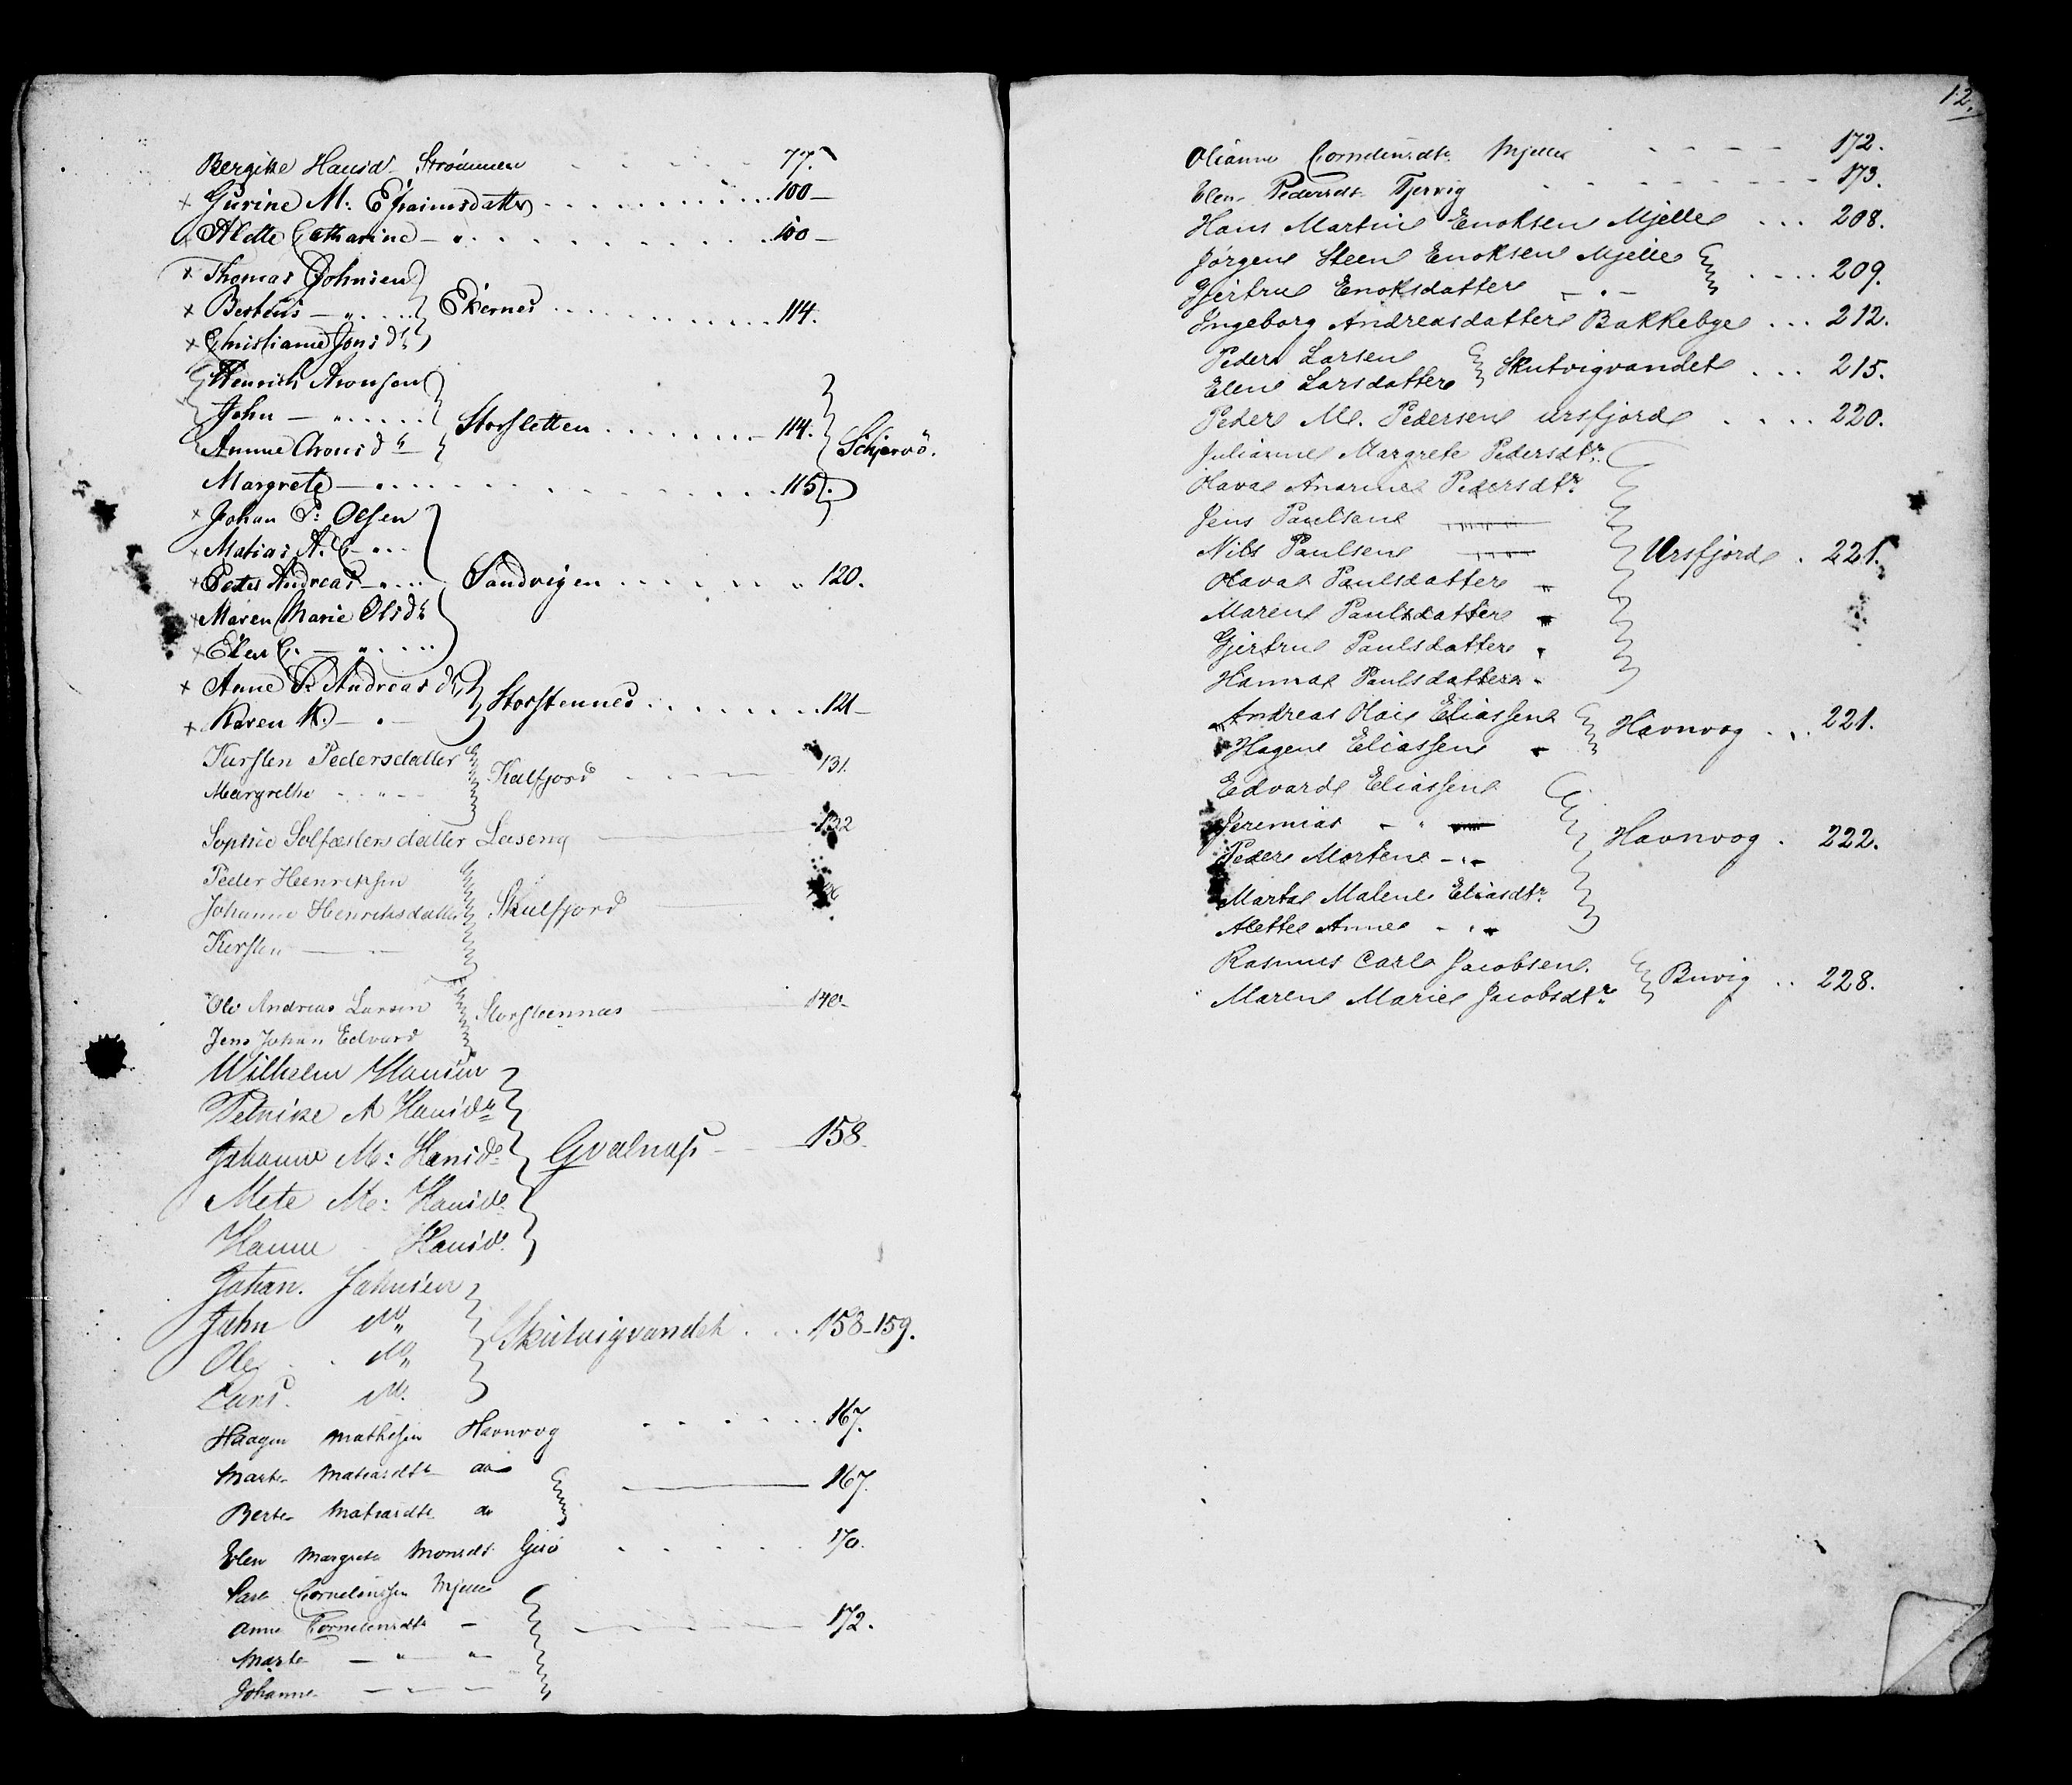 Bergitte Hansd. Strømmen - - - - 77.
x Gurine M: Efraimsdatter . . . . . . . . . . 100 —
x Alette Catharine — „ . . . . . . . . . . . 100 —
x Thomas Johnsen
x Bertius — „ . . . . Ekernes . . . . . . . . . . . . 114.
x Christiane Jonsdr
Henrich Aronsen
John — „ . . . . . Storsletten . . . . . . . — 114.
Anne Aronsdr Schjervö.
Margrete — „ . . . . . . . . . . . . . . 115.
x Johan P: Olsen
x Matias A. C — „ . .
x Peder Andreas — „ . . . Sandvigen . . . . . . . „ 120.
x Maren Marie Olsdr
x Elen C. — „ . . . .
x Anne P. Andreasdr
x Karen K. — „ — Storstennes . . . . . . . . 121 —
Kirsten Pedersdatter
Margrethe - - „ - - Kalfjord - - - — 131.
Sophie Solfæstersdatter Leaseng ——— 132
Peder Henriksen
Johanne Henriksdatter Skulfjord ———
Kirsten — „ —
Ole Andreas Larsen Storstennæs ——— 140 -
Jens Johan Edvard
Wilhelm Hansen
Petrike A Hansdr
Johanne M: Hansdr Gvalnaſs - — 158
Mete M: Hansdr
Hanne - Hansdr
Johan. Johnsen
John do„
Ole . . do„ Skutvigvandet . . . 158-159.
Lars. do.
Haagen Mathisen Havnvog - - - - . . . 167.
Marte Matiasdtr do
——— 167.
Berte Matiasdtr do
Elen Margrete Monsdt. Gisö . . . . . 170.
Carl Corneliussen Mjelle
Anne Corneliusdtr — — - - - - - — 172.
Marte — „ — „ —
Johanne — - — —
12.
Olianne Corneliusdtr Mjelle - - - - - 172.
Elen Pedersdt. Tjervig - - - - - - - - 173.
Hans Martin Enoksen Mjelle . . . 208.
Jørgen Steen Enoksen Mjelle
. . . . 209.
Gjertrud Enoksdatter — „ —
Ingeborg Andreasdatter Bakkebye . . . 212.
Peder Larsen
Skutvigvandet . . . 215.
Elen Larsdatter
Peder M. Pedersen Ursfjord . . . . 220.
Julianne Margrete Pedersdtr.
Hava Anarine Pedersdtr.
Jens Paulsen
Nils Paulsen Ursfjord . 221.
Hava Paulsdatter „
Maren Paulsdatter „
Gjertrud Paulsdatter „
Hanna Paulsdatter „
Andreas Olai Eliassen
Havnvog . . . 221.
Hagen Eliassen „
Edvard Eliassen
Jeremias — „ —
Havnvog . 222.
Peder Morten — „ —
Marta Malene Eliasdtr.
Alette Anne — „ —
Rasmus Carl Jacobsen.
Buvig . . 228.
Maren Marie Jacobsdtr.